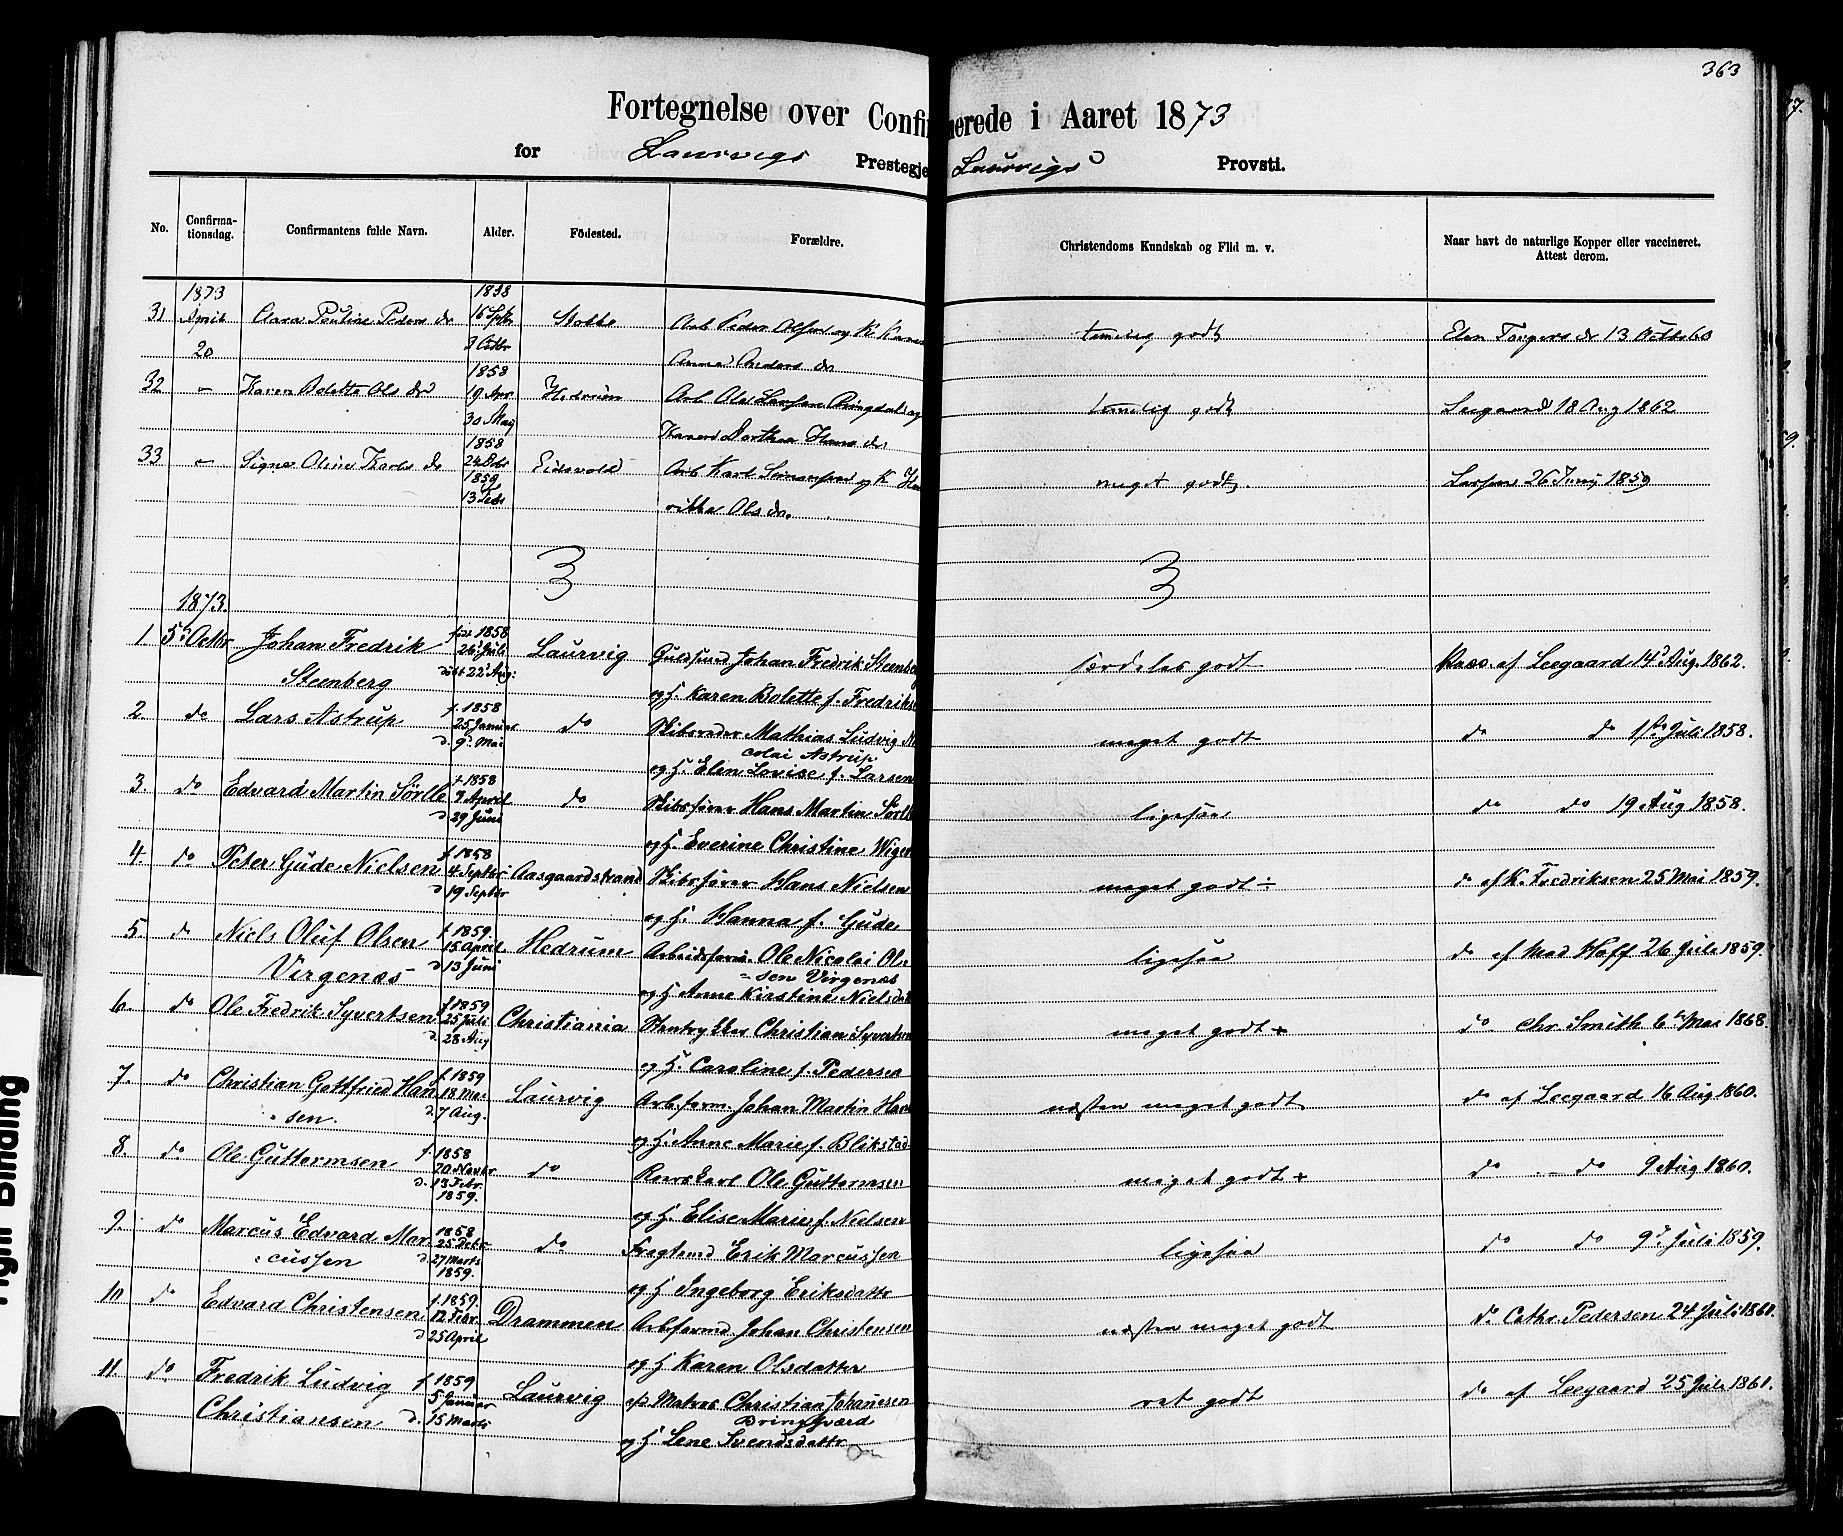 363
Fortegnelse over Confirmerede i Aaret 1873
for Laurvigs Prestegje Laurvigs Provsti.
No. Confirma-tionsdag. Confirmantens fulde Navn. Alder. Födested. Forældre. Christendoms Kundskab og Flid m. v. Naar havt de naturlige Kopper eller vaccineret. Attest derom.
1873 1858
31 April Clara Pauline Peders dr 16 Sptr Arb Peder Olsen og K Karen temelig godt Elen Torgers dr 13 Octb 60
20 3 Octbr Anne Anders dr
1858
32 " Karen Bolette Ols dr 19 Apr Hedrum Arb Ole Larsen Ringdal og temelig godt Legaard 18 Aug 1862
30 Maj Karen Dorthea Hans dr
1858
33 " Signe Oline Karls dr 24 Eidsvold Arb Karl Simonsen og K Hen meget godt. Larsen 26 Juny 1859
1859
13 Febr rikke Ols dr.
3 3
1873.
1. 5 Octbr Johan Fredrik født 1858 26 Juli Laurvig Guldsmd Johan Fredrik Steenberg særdeles godt Vacc. af Leegaard 14 Aug. 1862.
Steenberg døbt 22 Aug: og H. Karen Bolette f. Fredriksen
2. do Lars Astrup f. 1858 25 Januar do Skibsreder Mathias Ludvig Ni meget godt do do 1ste Juli 1858.
d. 9 Mai colai Astrup
og H. Elin Lovise f. Larsen
3. do Edvard Martin Sørlle f 1858 9 April do Skibsfører Hans Martin Sørlle ligesaa do do 19 Aug 1858.
d 29 Juni og H. Everine Christine Wiger
4. do Peter Gude Nielsen f. 1858 4 Septbr Aasgaardstrand Skibsfører Hans Nielsen meget godt ÷ do af K. Fredriksen 25 Mai 1859.
d 19 Septbr og H. Hanna f. Gude
5. do Niels Oluf Olsen f. 1859. 15 April Hedrum Arbeidsform. Ole Nicolai Ol- ligesaa do af Mad Hoff 26 Juli 1859.
Virgenæs d 13 Juni sen Virgenæs
og H Anne Kirstine Nielsdatt
6. do Ole Fredrik Syvertsen f 1859 25 Juli Christiania Stentrykker Christian Syvertsen meget godt + do Chr. Smith 6 Mai 1868.
d. 28 Aug og H. Caroline f. Pedersen
7. do Christian Gottfried Han f. 1859 18 Mai Laurvig Arb.form. Johan Martin Hans næsten meget godt do af Leegaard 16 Aug 1860.
sen. d 7 Aug. og H. Anne Marie f. Blikstad
8. do Ole Guttormsen f. 1858 20 Novbr do Ole Guttormsen meget godt + do do 9 Aug 1860.
d. 13 Febr. 1859. og H. Elise Marie f. Nielsen
9. do Marcus Edvard Mar 1858 25 Decbr do Fragtemd Erik Marcussen ligesaa do do 9 Juli 1859.
cussen d. 27 Marts 1859. og H Ingeborg Eriksdattr
10 do Edvard Christensen f. 1859. 12 Febr Drammen Arbformd Johan Christensen næsten meget godt do Cathr. Pedersen 24 Juli 1860.
d 25 April og H Karen Olsdatter
11. do Fredrik Ludvig f 1859 5 Januar Laurvig Matros Christian Johanesen ret godt do af Leegaard 25 Juli 1861.
Christiansen d. 15 Marts
og H Lene Svendsdattr